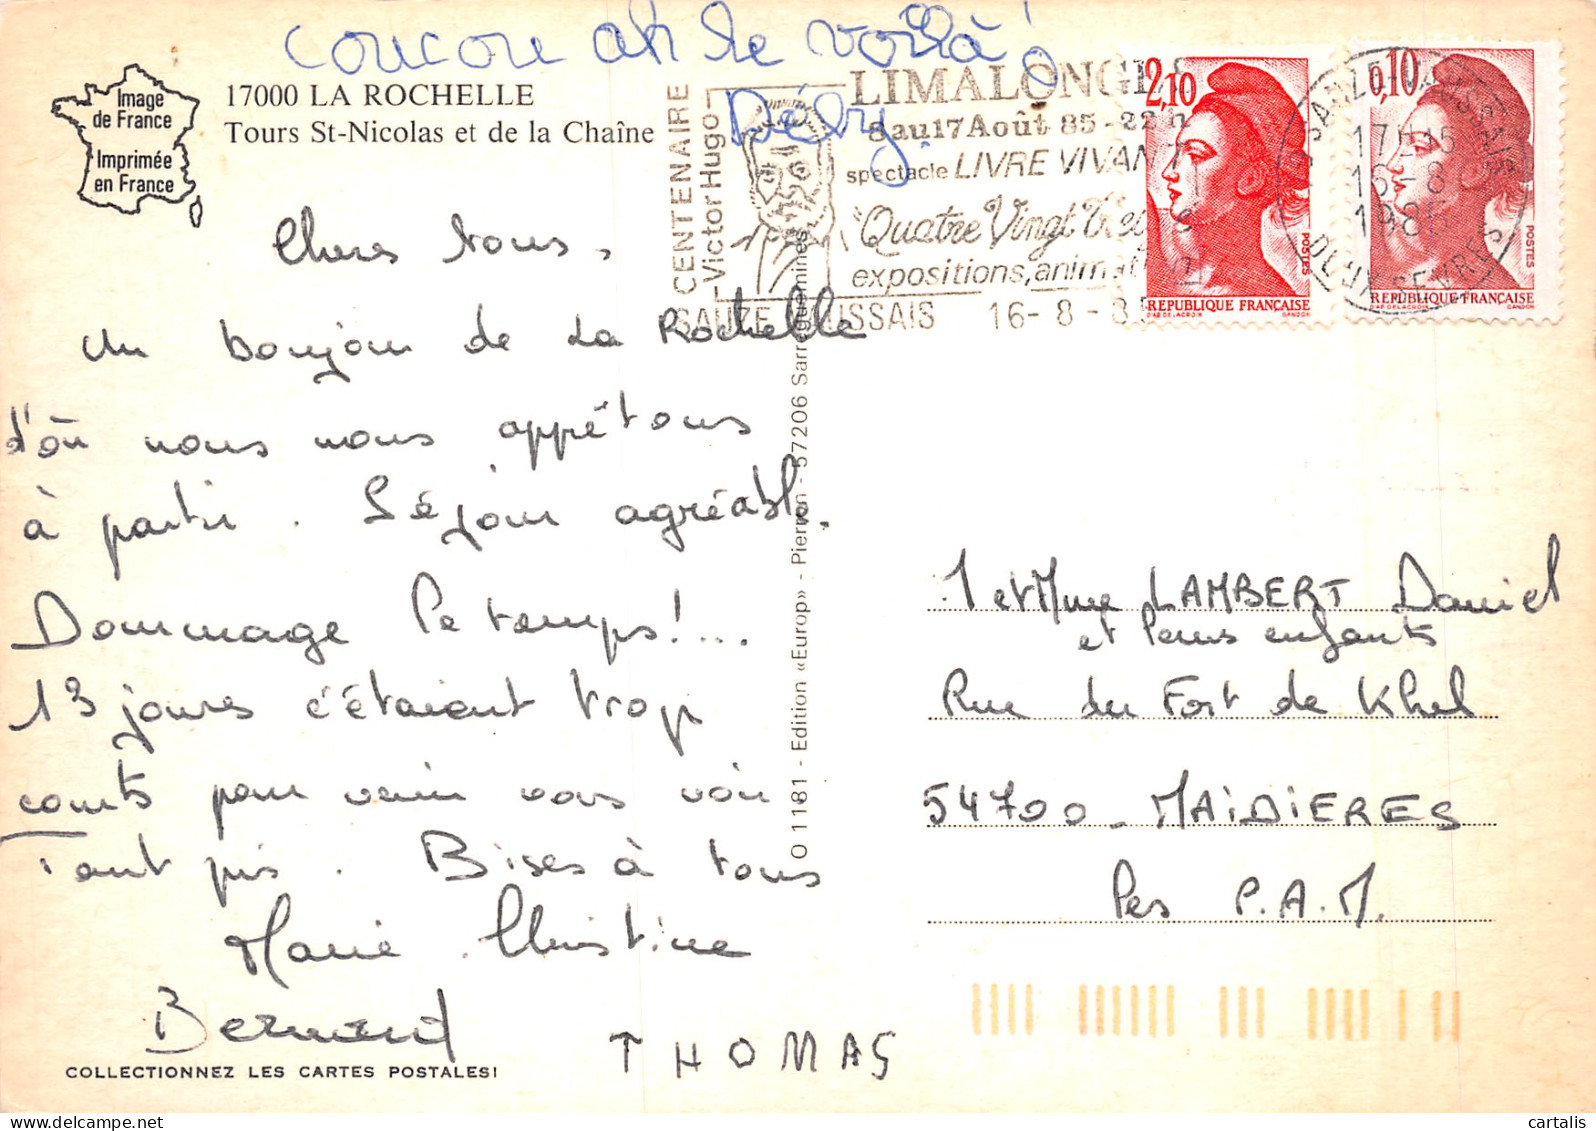 coucou ah le voilà
Image
de France
Imprimée
en France
17000 LA ROCHELLE
Tours St-Nicolas et de la Chaîne
CENTENAIRE
Victor Hugo
LIMALONGES
8 au 17 Août 85 - 22 h
spectacle LIVRE VIVANT
"Quatre Vingt Trei
expositions, animat
SAUZE VAUSSAIS 16-8-85
2,10
POSTES
REPUBLIQUE FRANÇAISE
D'AP. DELACROIX GANDON
0,10
POSTES
REPUBLIQUE FRANÇAISE
D'AP. DELACROIX GANDON
SAUZE-VAUSSAIS
17H45
16-8
1985
DEUX SEVRES
Chers tous,
Un bonjour de La Rochelle
d'où nous nous apprêtons
à partir. Séjour agréable.
Dommage le temps!...
13 jours c'étaient trop
courts pour venir vous voir
Tant pis. Bises à tous
Marie Christine
Bernard
THOMAS
COLLECTIONNEZ LES CARTES POSTALES!
O 1181 - Edition «Europ» - Pierron - 57206 Sarreguemines
M et Mme LAMBERT Daniel
et leurs enfants
Rue du Fort de Khel
54700 - MAIDIERES
Les P.A.M.